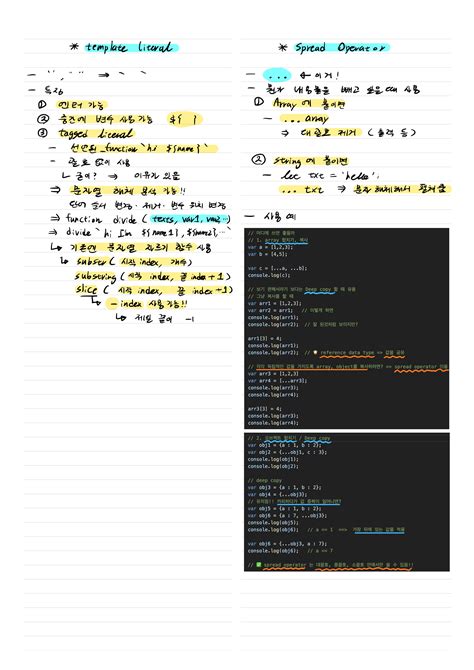 * template literal
- " ", ' ' ⇒ ` `
- 특징
① 엔터 가능
② 중간에 변수 사용 가능 ${ }
③ tagged literal
- 선언된_function `hi ${name}`
- 괄호 없이 사용
↳ 굳이? ⇒ 이유가 있음
⇒ 문자열 해체 분석 가능!!
단어 순서 변경·제거·변수 위치 변경
⇒ function divide ( texts, var1, var2...)
⇒ divide `hi I'm ${name1}, ${name2}`
↳ 기존엔 문자열 자르기 함수 사용
↳ substr ( 시작 index, 개수)
substring ( 시작 index, 끝 index +1)
slice ( 시작 index, 끝 index +1)
↳ - index 사용가능!!
↳ 제일 끝이 -1
* Spread Operator
- ... ← 이거!
- 뭔가 내용물을 빼고 싶을 때 사용
① Array에 붙이면
- ...array
⇒ 대괄호 제거 ( 출력 등)
② string에 붙이면
- let txt = 'hello';
...txt ⇒ 문자 해체해서 펼쳐줌
- 사용 예
// 어디에 쓰면 좋을까
// 1. array 합치기, 복사
var a = [1,2,3];
var b = [4,5];
var c = [...a, ...b];
console.log(c);
// 쓰기 편해서라기 보다는 Deep copy 할 때 유용
// 그냥 복사를 할 때
var arr1 = [1,2,3];
var arr2 = arr1; // 이렇게 하면
console.log(arr1);
console.log(arr2); // 잘 된것처럼 보이지만?
arr1[3] = 4;
console.log(arr1);
console.log(arr2); // reference data type => 값을 공유
// 각각 독립적인 값을 가지도록 array, object를 복사하려면? => spread operator 이용
var arr3 = [1,2,3]
var arr4 = [...arr3];
console.log(arr3);
console.log(arr4);
arr3[3] = 4;
console.log(arr3);
console.log(arr4);
// 2. 오브젝트 합치기 / Deep copy
var obj1 = {a : 1, b : 2};
var obj2 = {...obj1, c : 3};
console.log(obj1);
console.log(obj2);
// deep copy
var obj3 = {a : 1, b : 2};
var obj4 = {...obj3};
// 유의점!! 카피하다가 값 중복이 일어나면?
var obj5 = {a : 1, b : 2};
var obj6 = {a : 7, ...obj3};
console.log(obj5);
console.log(obj6); // a <= 1 ==> 가장 뒤에 있는 값을 적용
var obj6 = {...obj3, a : 7};
console.log(obj6); // a <= 7
// ✅ spread operator 는 대괄호, 중괄호, 소괄호 안에서만 쓸 수 있음!!